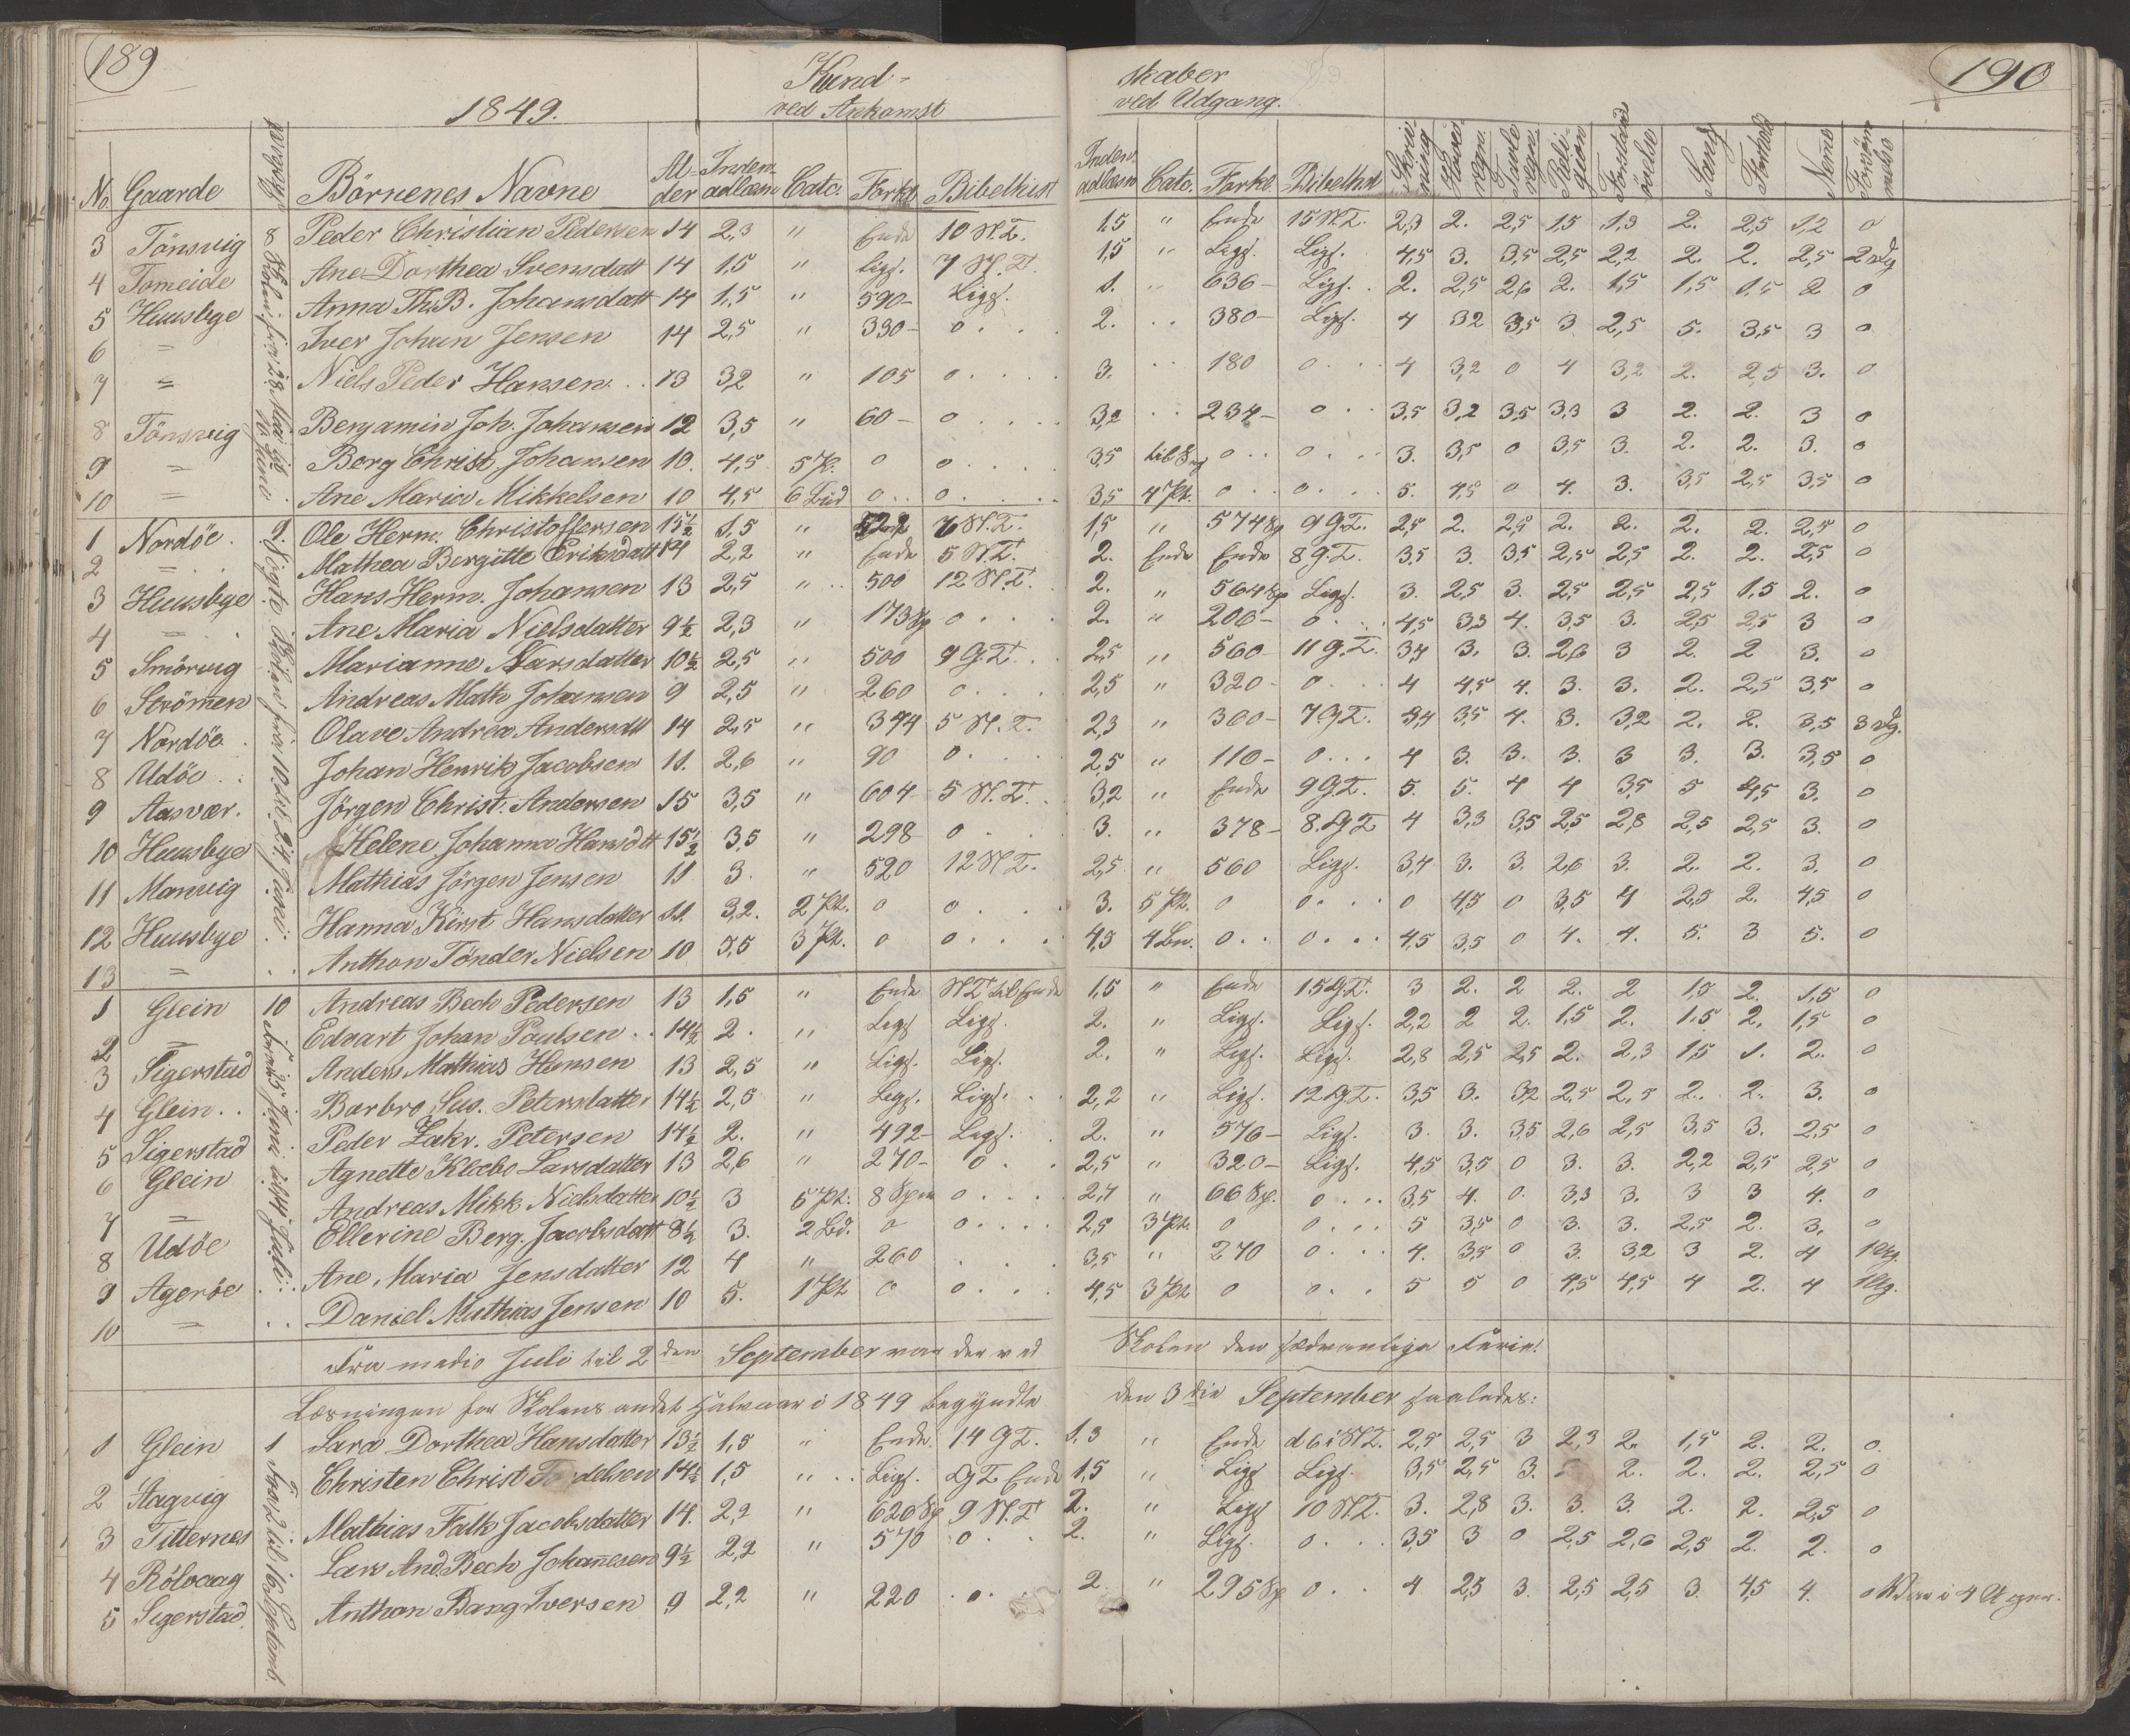 189
Kund-
1849.
ved Ankomst
No Gaarde Börnenes Navne Al-der Inden-adlæsn Catc. Forkl. Bibelhist
3 Tönsvig 8 Peder Christian Pedersen 14 2,3 " Ende 10 N.T.
4 Tomeide Ane Dorthea Svensdatt 14 1,5 " Ligs. 7 N.T.
5 Huusbye Anna Th.B. Johansdatt 14 1,5 " 590- Ligs.
6 = Iver Johan Jensen 14 2,5 " 330- 0
7 = Niels Peder Hansen 13 32 " 105 0
8 Tönsvig Benjamin Joh. Johansen 12 3,5 " 60- 0
9 = Berg Christ. Johansen 10. 4,5 5 Pt. 0 0
10 = Ane Maria Mikkelsen 10 4,5 6 Bud 0 0
1 Nordöe Ole Herm. Christoffersen 15½ 1,5 " 522 7 N.T.
2 = Mathea Bergitte Eriksdatt 14 2,2 " Ende 5 N.T.
3 Huusbye Hans Herm. Johansen 13 2,5 " 500 12 N.T.
4 = Ane Maria Nielsdatter 9½ 2,3 " 173 Sp 0
5 Smörvig Marianne Larsdatter 10½ 2,5 " 500 9 G.T.
6 Strömen Andreas Math Johansen 9 2,5 " 260 0
7 Nordöe Olave Andrea Andersdtt 14 2,5 " 394 5 N.T.
8 Udöe Johan Henrik Jacobsen 11. 2,6 " 90 0
9 Aasvær. Jörgen Christ. Andersen 15 3,5 " 604 5 N.T.
10 Huusbye Helene Johanna Hansdtt 15½ 3,5 " 298 0
11 Manvig Mathias Jörgen Jensen 11 3. " 520 12 N.T.
12 Huusbye Hanna Kirst Hansdatter 11. 3,2. 2 Pt. 0 0
13 = Anthon Tönder Nielsen 10 3,5 3 Pt. 0 0
1 Glein 10 Andreas Bech Pedersen 13 1,5 " Ende N.T. til Ende
2 = Edvart Johan Poulsen 14½ 2. " Ligs Ligs.
3 Sigerstad Anders Mathias Hansen 13 2,5 " Ligs. Ligs.
4 Glein Barbro Sus. Petersdatter 14½ 2,5 " Ligs. Ligs.
5 Sigerstad Peder Zakr. Petersen 14½ 2. " 492- Ligs.
6 Glein Agnette Kleebo Larsdatter 13 2,6 " 270- 0
7 = Andreas Mikk Nielsdatter 10½ 3 5 Pt. 8 Spm 0
8 Udöe Ellerine Berg. Jacobsdatt 8½ 3. 2 Bd. 0 0
9 Ageröe Ane Maria Jensdatter 12 4 " 260
10 = Daniel Mathias Jensen 10 5. 1 Pt 0 0
Fra medio Juli til 2 den September var der ved
Læsningen for Skolens andet Halvaar i 1849 begyndte
1 Glein 1 Sara Dorthea Hansdatter 13½ 1,5 " Ende. 14 G.T.
2 Aagvig Christen Christ 14½ 1,5 " Ligs. G.T. Ende
3 Titternes Mathias Falk Jacobsdatter 14. 2,2 " 620 Sp 9 N.T.
4 Rölvaag Lars And. Bech Johannesen 9½ 2,2 " 570 0
5 Sigerstad Anthon Bang Iversen 9 2,2 " 220 0
Skolen fra 28 Mai til 9 Juni
9. Sögte Skolen fra 10 til 24 Juni
Fra 25 Juni til 7 Juli
Fra 2 til 16 Septemb.
190
skaber
ved Udgang.
Inden-adlæsn Catc. Forkl. Bibelhist Skriv-ning Hoved-regn. Tavle regn. Reli-gion Forstand övelse Sang Forhold Nemme Forsömmelse
1,5 " Ende 15 N.T. 2,3 2. 2,5 1,5 1,3 2. 2,5 1,2 0
1,5 " Ligs. Ligs. 4,5 3. 3,5 2,5 2,2 2. 2. 2,5 2 Dg
1. " 636- Ligs. 2. 2,5 2,6 2. 1,5 1,5 1,5 2 0
2. 380- Ligs. 4 32 3,5 3 2,5 5. 3,5 3 0
3. 180 0 4 3,2 0 4 3,2 2. 2,5 3. 0
3,2 234- 0 3,5 3,2 3,5 3,3 3 2. 2. 3 0
3,5 0 0 3. 3,5 0 3,5 3. 2. 2. 3. 0
3,5 4 Pt. 0 0 5. 4,5 0 4. 3. 3,5 2,5 3,5 0
1,5 " 574 Sp 9 G.T. 2,5 2. 2,5 2. 2. 2. 2. 2,5 0
2. Ende Ende 8 G.T. 3,5 3. 3,5 2,5 2,5 2. 2. 2,5 0
2. " 564 Sp Ligs. 3. 2,5 3. 2,5 2,5 2,5 1,5 2. 0
2. " 206- 0 4,5 3,3 4. 3,5 3. 2,5 2,5 3 0
2,5 " 560 11 G.T. 3,4 3. 3. 2,6 3 2. 2 3. 0
2,5 " 320- 0 4 4,5 4. 3. 3. 2. 2,5 3,5 0
2,3 " 300- 7 G.T. 3,4 3,5 4. 3. 3,2 2. 2. 3,5 3 Dg.
2,5 " 110- 0 4 3. 3. 3. 3 3. 3. 3,5 0
3,2 " Ende 9 G.T. 5. 5. 4 4 3,5 5 4,5 3. 0
3. " 378- 8. G.T. 4 3,3 3,5 2,5 2,8 2,5 2,5 3. 0
2,5 " 560 Ligs. 3,4 3. 3. 2,6 3. 2. 2. 3. 0
3. 5 Pt. 0 0 0 4,5 0 3,5 4 2,5 2. 4,5 0
4,5 4 Bn. 0 0 4,5 3,5 0 4. 4. 5. 3 5. 0
1,5 " Ende 15 G.T. 3 2. 2 2. 2 1,5 2. 1,5 0
2. " Ligs. Ligs. 2,2 2 2. 1,5 2. 1,5 2. 1,5 0
2. " Ligs. Ligs. 2,8 2,5 2,5 2. 2,3 1,5 1. 2. 0
2,2 " Ligs. 12 G.T. 3,5 3. 32 2,5 2,5 2. 2. 3. 0
2. " 576- Ligs. 3. 3. 3,5 2,6 2,5 3,5 3. 2,5 0
2,5 " 320- Ligs. 4,5 3,5 0 3. 3. 2,2 2,5 2,5 0
2,7 " 66 Sp. 0 3,5 4. 0. 3,3 3. 3 3 4. 0
2,5 3 Pt. 0 0 5 3,5 0 3. 3. 2,5 2. 3. 0
3,5 " 270 0 4. 3,5 0 3. 3,2 3 2. 4 1 Dg.
4,5 3 Pt 0 0 5 5 0 4,5 4,5 4 2. 4 1 Dg.
Skolen den sædvanlige Ferie!
den 3 die September saaledes:
1,3 " Ende d 6 i N.T. 2,5 2,5 3 2,3 2. 1,5 2. 2. 0.
1,5 " Ligs Ligs. 3,5 2,5 3. 2. 2. 2. 2,5 0
2. " Ligs 10 N.T. 3. 2,8 3. 3. 3. 2. 2. 2,5 0
2. " Ligs. 0 3,5 3 0 2,5 2,6 2,5 2. 2. 0
2 " 295 Sp 0 4 2,5 3. 2,5 2,5 3. 4,5 4. 0 Var i 4 Uger.